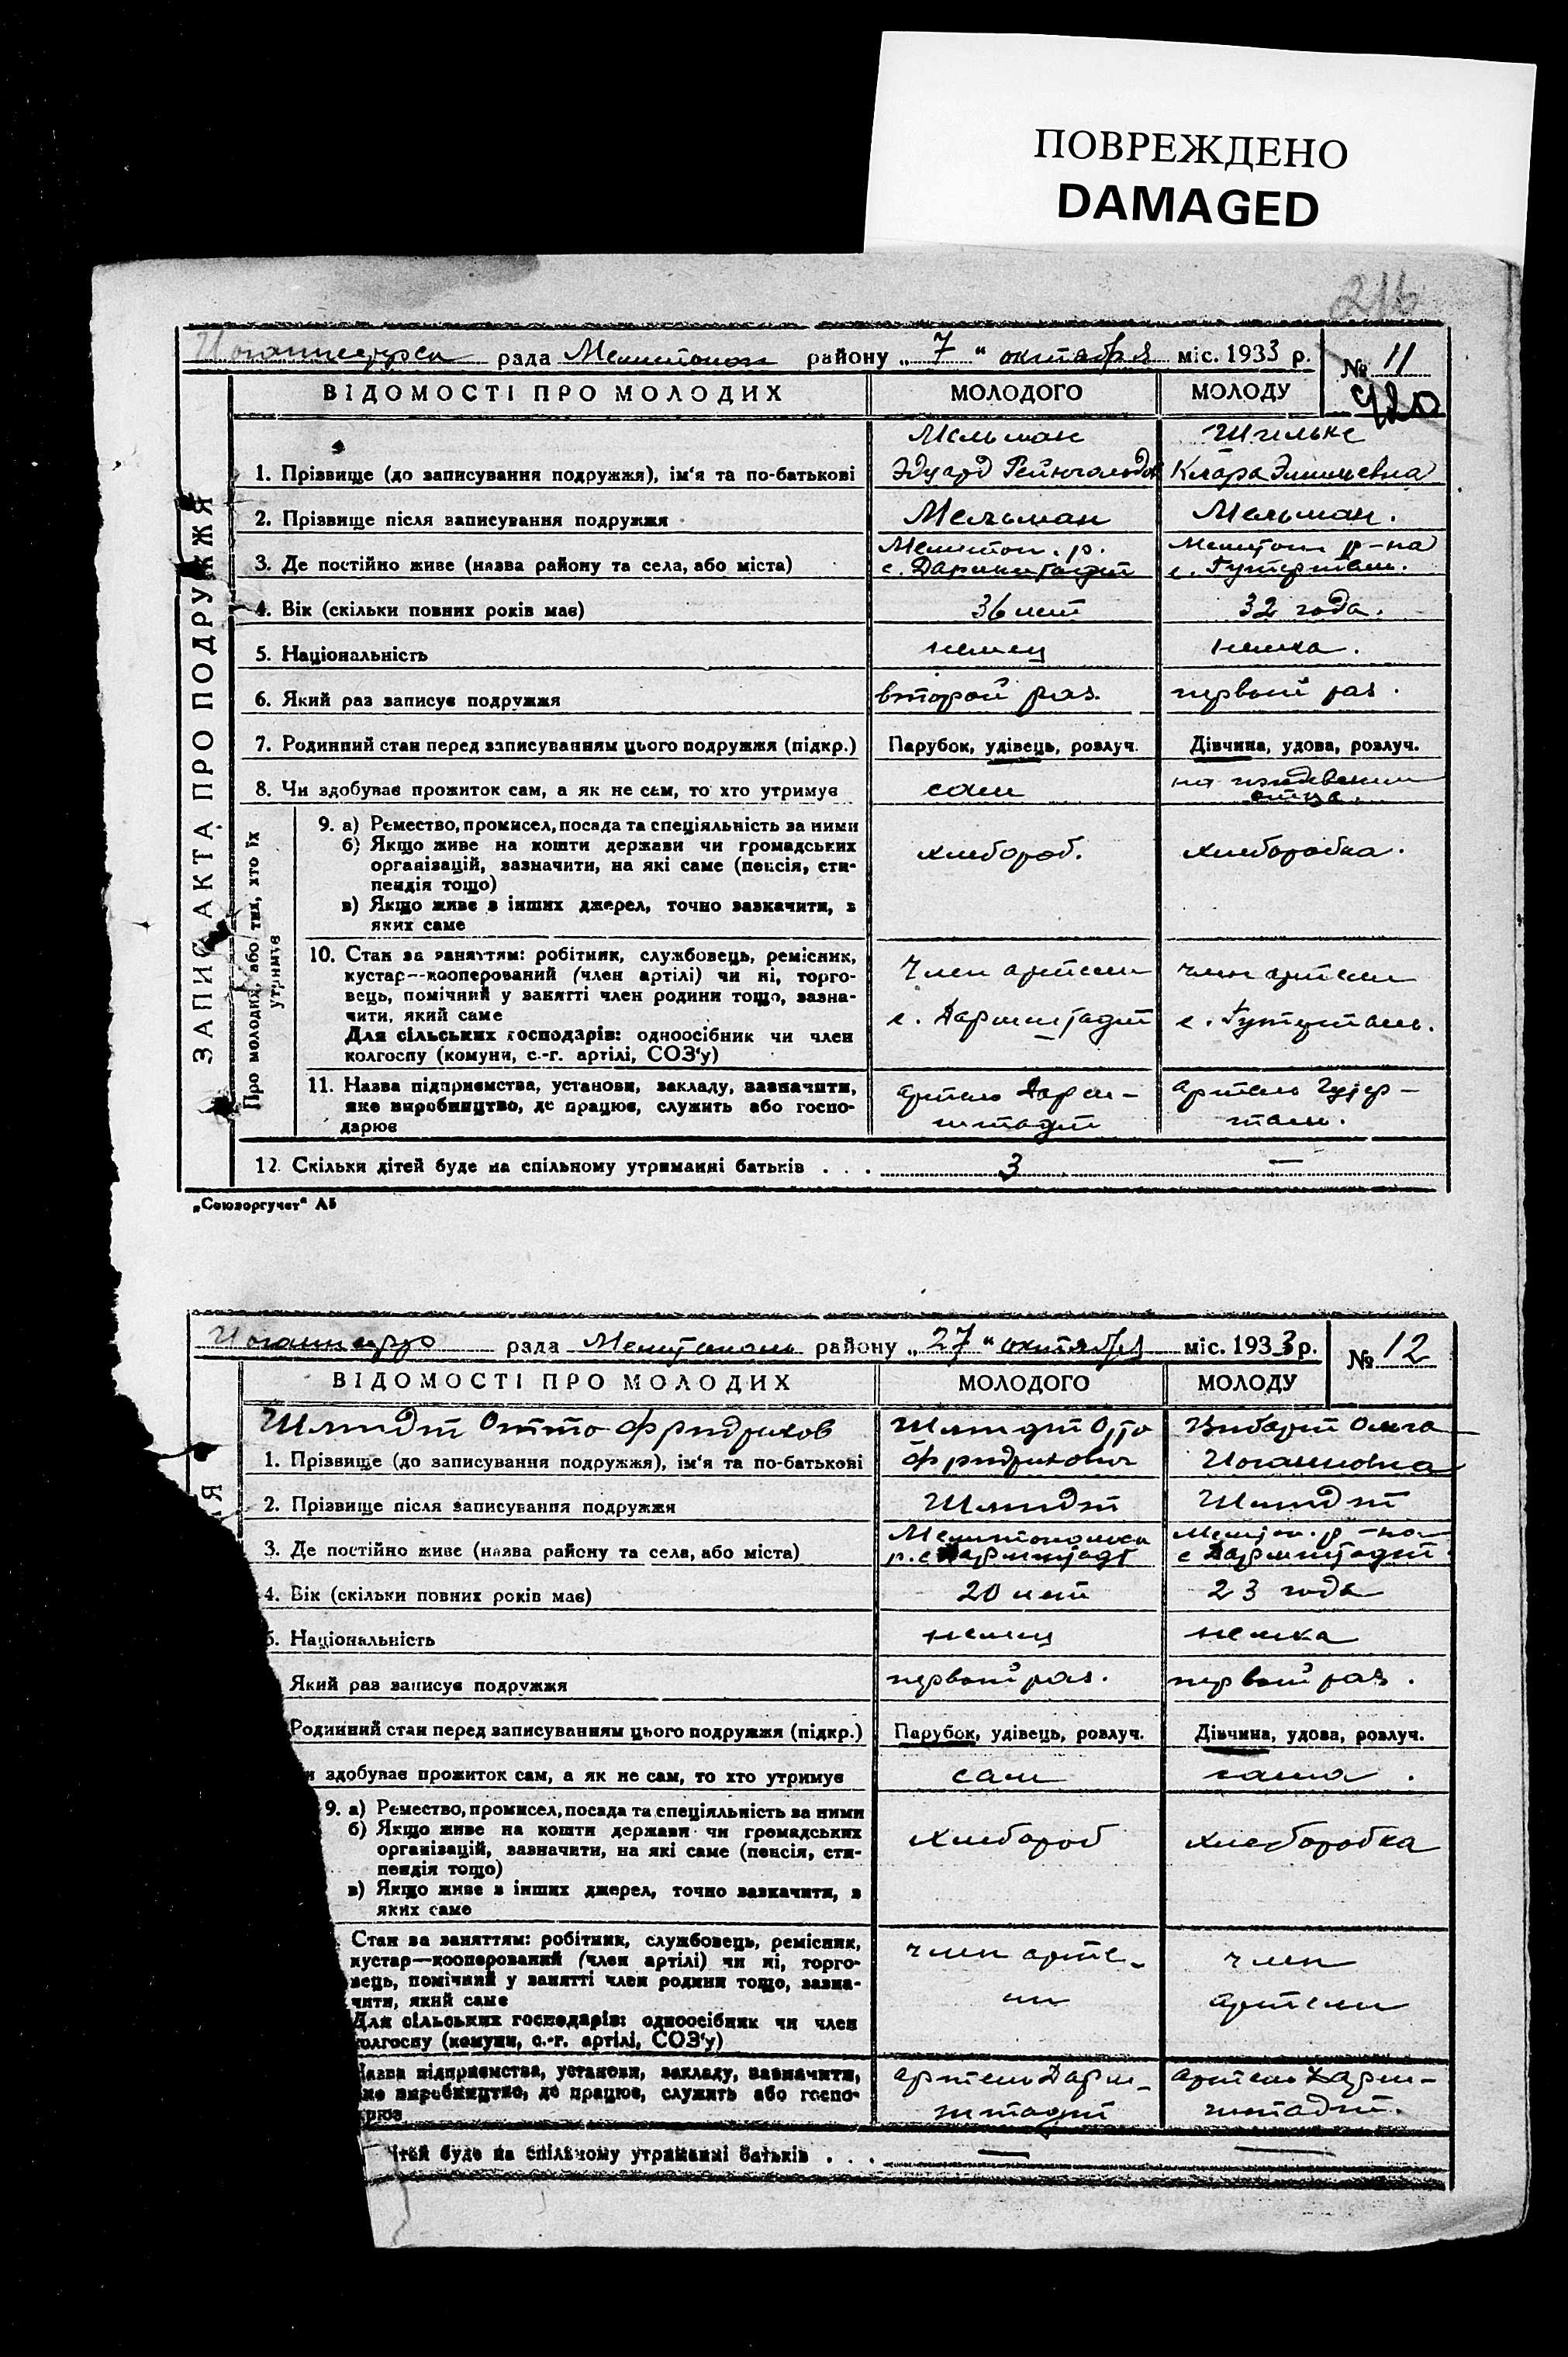 ПОВРЕЖДЕНО
DAMAGED
216
рада Мелитопол району „ 7 “ октября міс. 1933 р.
№ 11
ВІДОМОСТІ ПРО МОЛОДИХ МОЛОДОГО МОЛОДУ
ЗАПИС АКТА ПРО ПОДРУЖЖЯ
Мельман Шильке
1. Прізвище (до записування подружжя), ім‘я та по-батькові Эдуард Рейнгольдов Клара
2. Прізвище після записування подружжя Мельман Мельман.
Мелитоп. р. Мелитоп р-на
3. Де постійно живе (назва району та села, або міста) с. Дармштадт с. Гутерталь.
4. Вік (скільки повних років має) 36 лет 32 года.
5. Національність немец немка.
6. Який раз записує подружжя второй раз. первый раз.
7. Родинний стан перед записуванням цього подружжя (підкр.) Парубок, удівець, розлуч. Дівчина, удова, розлуч.
на иждевении
8. Чи здобуває прожиток сам, а як не сам, то хто утримує сам отца.
Про молодих, або тих, хто їх утримує
9. а) Ремество, промисел, посада та спеціяльність за ними
б) Якщо живе на кошти держави чи громадських хлебороб. хлеборобка.
організацій, зазначити, на які саме (пенсія, сти-
пендія тощо)
в) Якщо живе з інших джерел, точно зазначити, з
яких саме
10. Стан за заняттям: робітник, службовець, ремісник,
кустар—кооперований (член артілі) чи ні, торго- член артели член артели
вець, помічний у занятті член родини тощо, зазна-
чити, який саме с. Дармштадт с. Гутерталь.
Для сільських господарів: одноосібник чи член
колгоспу (комуни, с.-г. артілі, СОЗ‘у)
11. Назва підприємства, установи, закладу, зазначити, артель Дарм- артель Гутер-
яке виробництво, де працює, служить або госпо- штадт таль.
дарює
12. Скільки дітей буде на спільному утриманні батьків . . . 3 —
„Союзоргучет“ А5
рада Мелитополь району „ 27 “ октября міс. 1933 р.
№ 12
ВІДОМОСТІ ПРО МОЛОДИХ МОЛОДОГО МОЛОДУ
Я
Шмидт Отто Фридрихов Шмидт Отто Ольга
1. Прізвище (до записування подружжя), ім‘я та по-батькові Фридрихович Иогановна
2. Прізвище після записування подружжя Шмидт Шмидт
Мелитоп. р-на
3. Де постійно живе (назва району та села, або міста) р. с Дармштадт с Дармштадт.
4. Вік (скільки повних років має) 20 лет 23 года
5. Національність немец немка
Який раз записує подружжя первый раз. первый раз.
Родинний стан перед записуванням цього подружжя (підкр.) Парубок, удівець, розлуч. Дівчина, удова, розлуч.
и здобуває прожиток сам, а як не сам, то хто утримує сам сама.
9. а) Ремество, промисел, посада та спеціяльність за ними
б) Якщо живе на кошти держави чи громадських хлебороб хлеборобка
організацій, зазначити, на які саме (пенсія, сти-
пендія тощо)
в) Якщо живе з інших джерел, точно зазначити, з
яких саме
Стан за заняттям: робітник, службовець, ремісник,
кустар—кооперований (член артілі) чи ні, торго- член арте- член
вець, помічний у занятті член родини тощо, зазна-
чити, який саме ли артели
Для сільських господарів: одноосібник чи член
колгоспу (комуни, с.-г. артілі, СОЗ‘у)
Назва підприємства, установи, закладу, зазначити, артель Дарм- артель Дарм-
яке виробництво, де працює, служить або госпо- штадт штадт.
арює
ітей буде на спільному утриманні батьків . . . — —